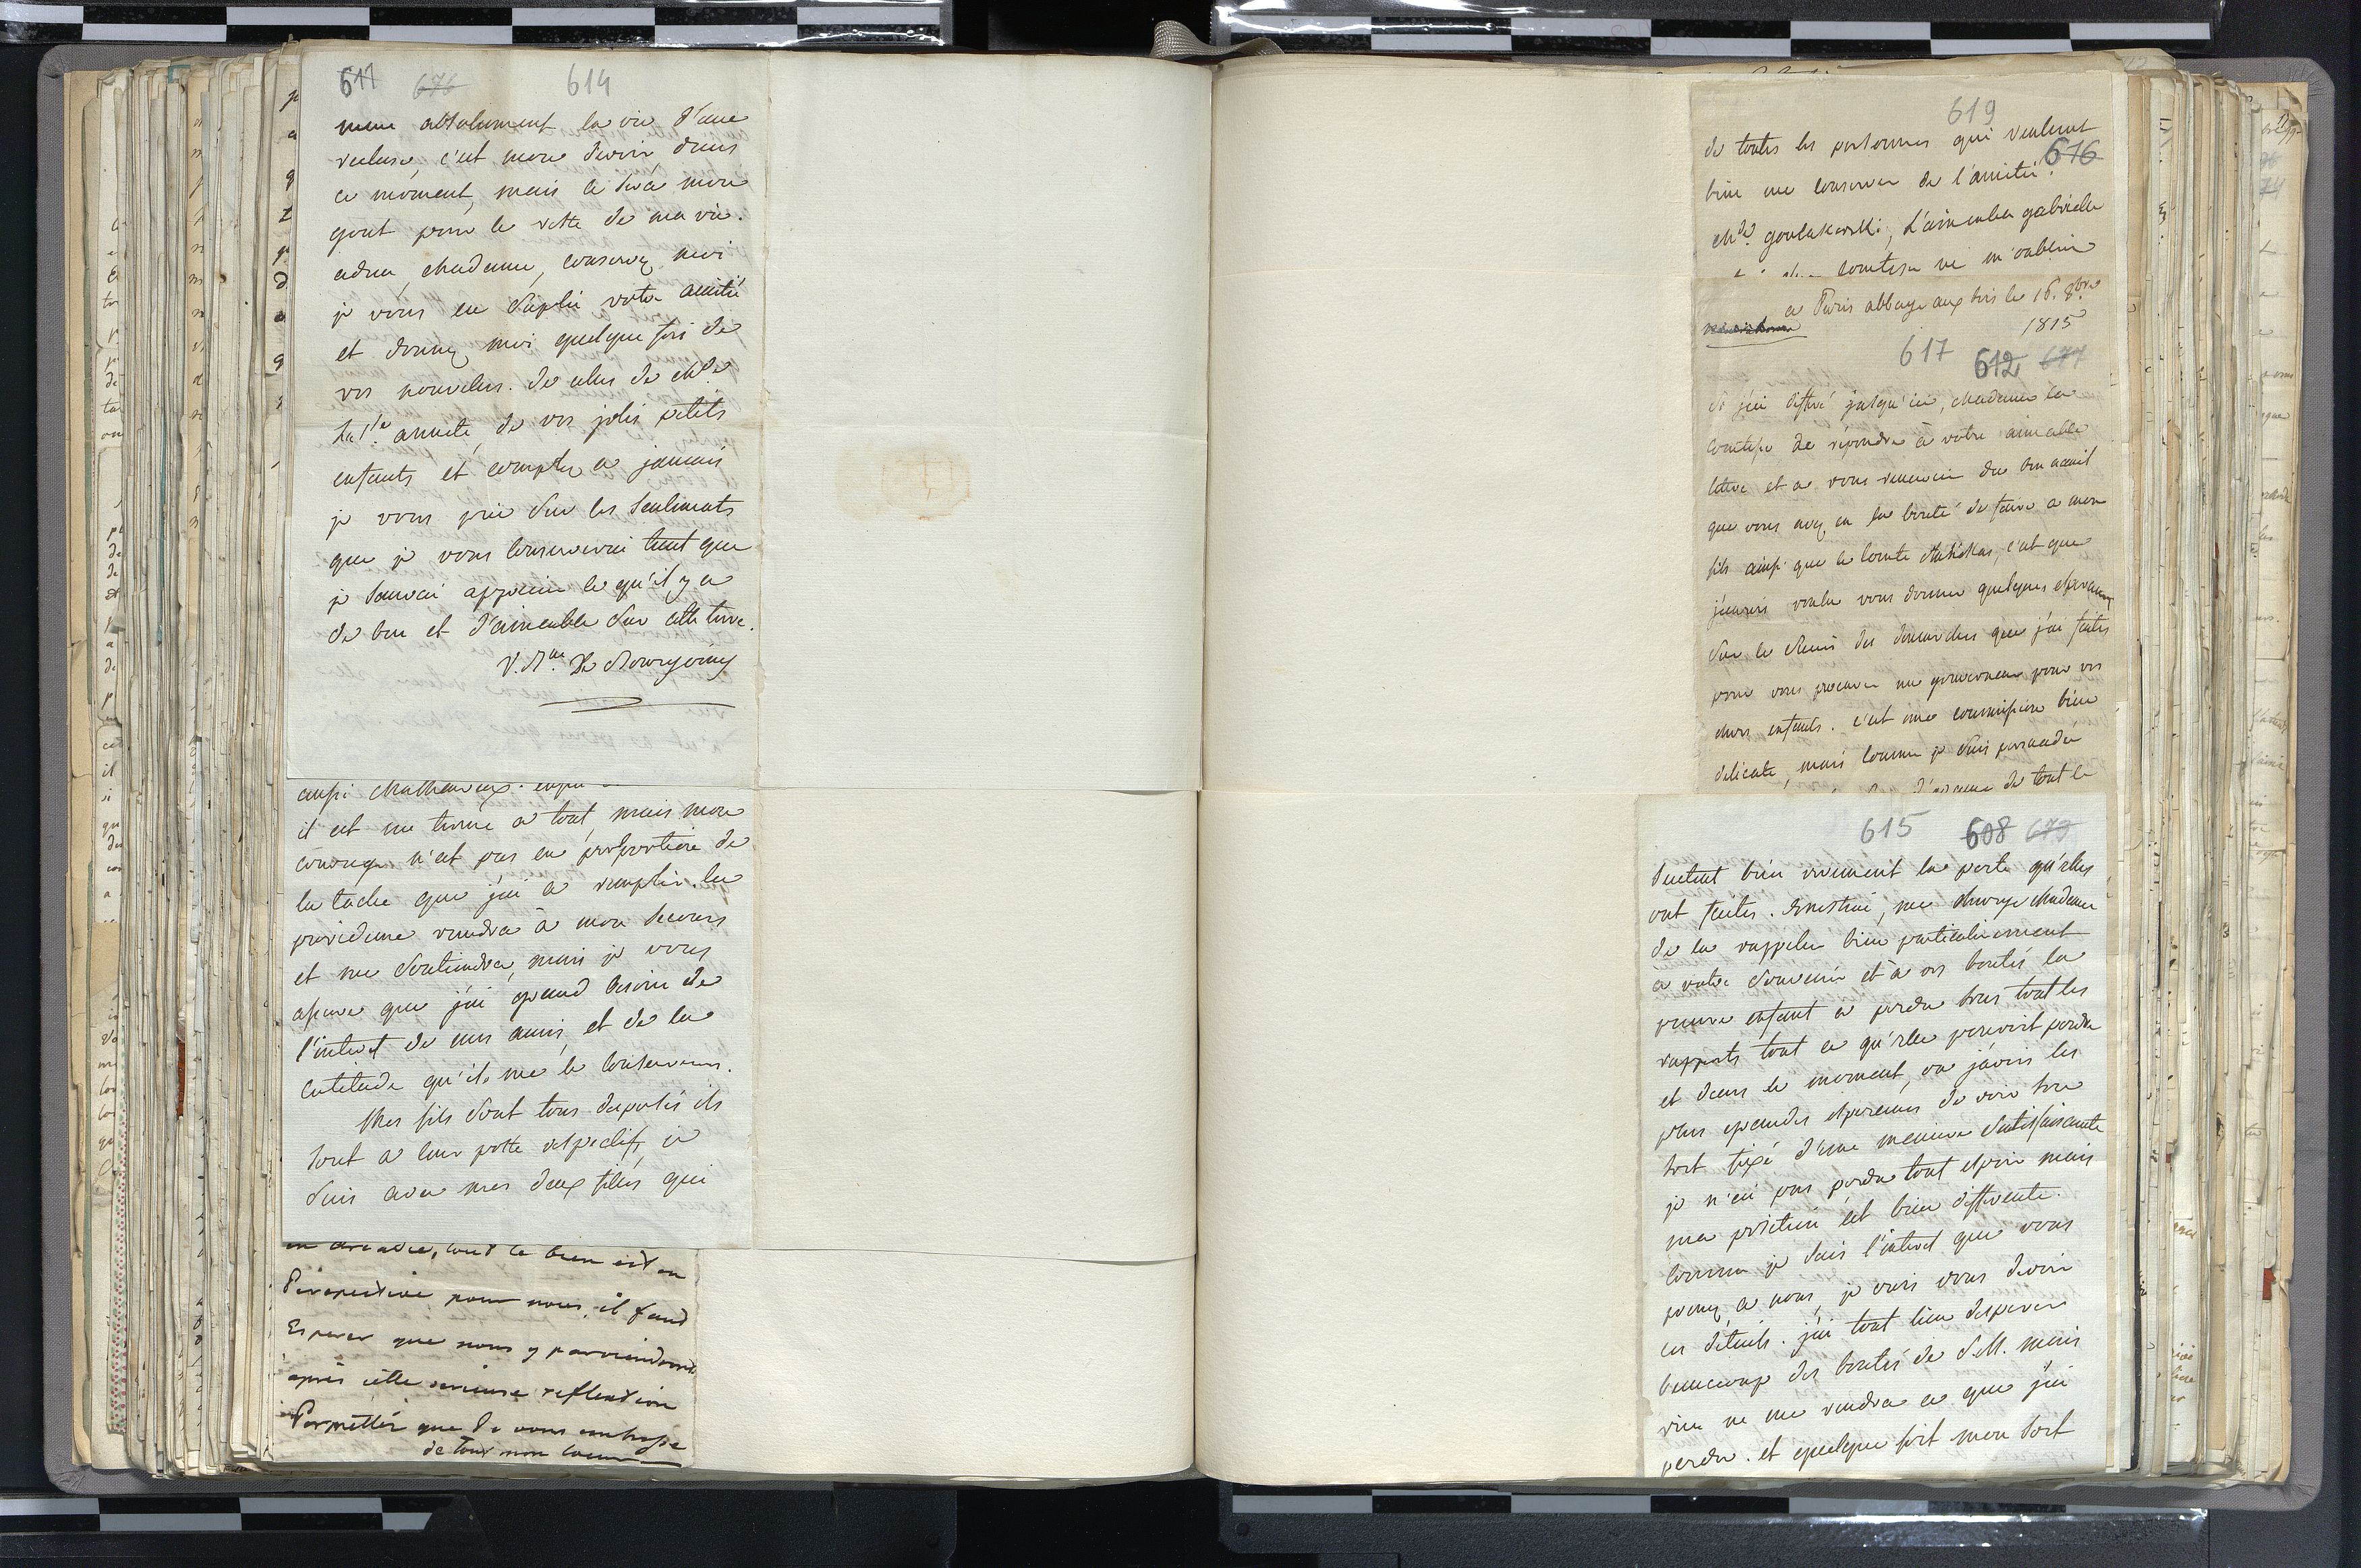 611 676 614
mene absolument la vie d'une
recluse, c'est mon devoir dans
ce moment, mais ce sera mon
gout pour le reste de ma vie.
adieu, Madame, conservez moi
je vous en suplie votre amitié
et donnez moi quelque fois de
vos nouvelles. de celles de Md.
annete, de vos jolis petits
enfants et comptez a jamais
je vous prie sur les sentiments
que je vous conserverai tant que
je saurai apprecier ce qu'il y a
de bon et d'aimable sur cette terre.
De Bourgoing
aussi Malheureux. enfin
il est un terme a tout, mais mon
courage n'est pas en proportion de
la tache que j'ai a remplir. la
providence viendra à mon secours
et me soutiendra, mais je vous
assure que j'ai grand besoin de
l'interet de mes amis, et de la
certitude qu'ils me le conservent.
Mes fils sont tous dispersés ils
sont a leur poste respectif, je
suis avec mes deux filles qui
tout le bien est en
Perspective pour nous. il faud
Esperer que nous y parviendrons
après cette serieuse reflextion
Permettés que Je vous embrasse
de tout mon coeur
619
de toutes les personnes qui veulent
bien me conserver de l'amitié. 616
Md. goulakowski, L'aimable gabrielle
comtesse ne m'oublient
a Paris abbaye aux bois le 16. 8bre
1815
617 612 677
si j'ai differé jusqu'ici, Madame la
Comtesse de repondre à votre aimable
lettre et a vous remercier du bon accueil
que vous avez eu la bonté de faire a mon
fils ainsi que le Comte c'est que
j'aurois voulu vous donner quelques esperances
sur le succès des demandes que j'ai faites
pour vous procurer un gouverneur pour vos
chers enfants. c'est une commission bien
delicate, mais comme je suis persuadée
de tout le
615 608 679
sentent bien vivement la perte qu'elles
ont faites. Ernestine, me charge Madame
de la rappeler bien particulierement
a votre souvenir et à vos bontés la
pauvre enfant a perdu sous tout les
rapports tout ce qu'elle pouvoit perdre
et dans le moment, ou j'avois les
plus grandes esperances de voir son
sort fixé d'une maniere satisfaisante
je n'ai pas perdu tout espoir mais
ma position est bien differente.
Comme je sais l'interet que vous
prenez a nous, je crois vous devoir
ces détails. j'ai tout lieu desperer
beaucoup des bontés de S.M. mais
rien ne me rendra ce que j'ai
perdu. et quelque soit mon sort